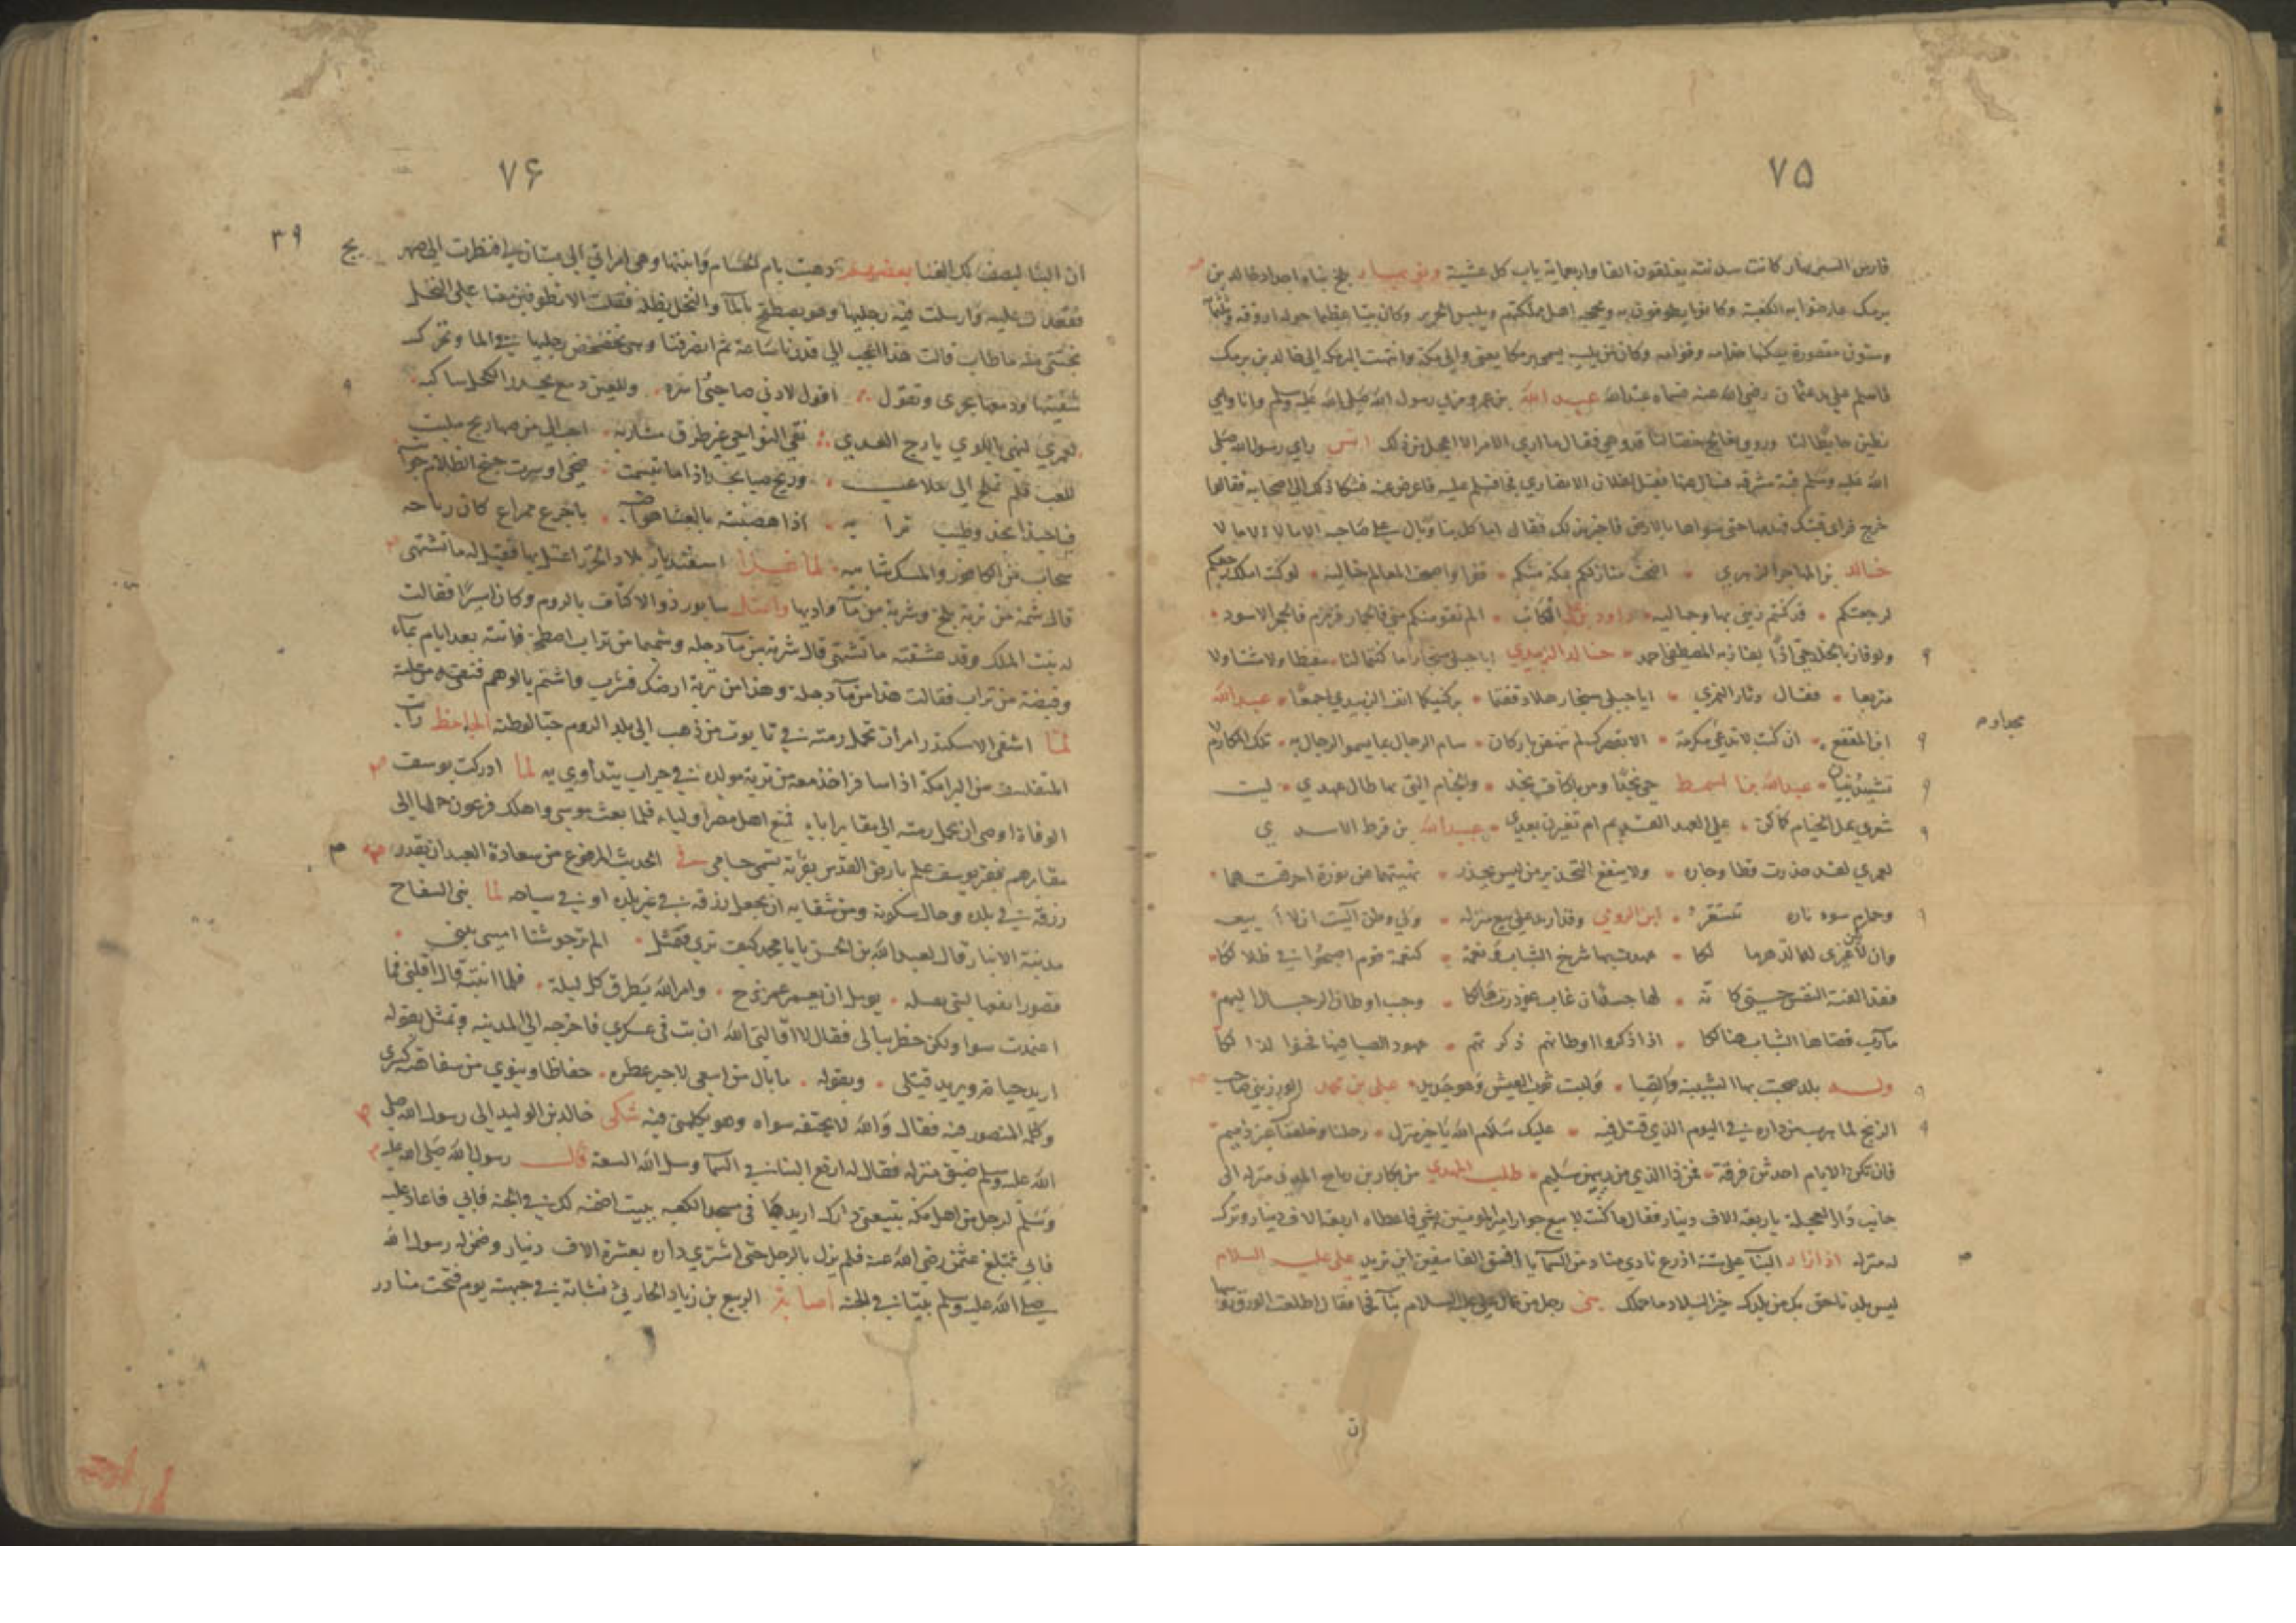 ٧۵
فارس
كانت سدنته يغلقون
باب كل عشية
بناه
خالد بن
برمك عارضوا به الكعبة وكانوا يطوفون به ويحجه اهل مملكتهم ويلبس الحرير وكان بيتا عظيما حوله اروقة وثلثمآ
وستون مقصورة يسكنها خدامه وقوامه وكان من يليه يسمى برمكا يعني والي مكة وانتهت البرمكه الى خالد بن برمك
فاسلم على يد عثمان رضي الله عنه فسماه عبد الله عبد الله بن عمرو مر بي رسول الله صلى الله عليه وسلم وانا وامي
نطين حايطا لنا وروى نعالج خصا لنا قد وهي فقال ما ارى الامر الا اعجل من ذلك انس راى رسول الله صلى
الله عليه وسلم قبة مشرفة فسال عنها فقيل لفلان الانصاري فجا فسلم عليه فاعرض عنه فشكا ذلك الى اصحابه فقالوا
خرج فراى قبتك فهدمها حتى سواها بالارض فاخبر بذلك فقال اما كل بنا وبال على صاحبه الا ما لا الا ما لا
خالد بن المهاجر الزهري اضحت منازلكم بمكة منكم قفرا واصبحت المعالم خاليه لو كنت املك رجعكم
لرجعتكم قد كنتم زيني بها وجماليه
الم
زمزم فالحجر الاسود
ولو فاز بالخلد حي اذا لفاز به المصطفى احمد خالد الزبيدي ايا جبلي سنجار ما كنتما لنا مقيظا ولا مشتا ولا
متربعا فقال دثار النمري ايا جبلي سنجار هلا دققتما بركنيكما انف الزبيدي اجمعا عبد الله
ابن المقفع ان كنت لا تدعي مكرمة الا بقصر لم تنهض باركان سام الرجال بما يسمو الرجال به تلك المكارم لا
تشييد بنيان عبد الله بن السمط حي نجدا ومن باكناف نجد والخيام التي بها طال عهدي ليت
شعري هل الخيام كما كن على العهد القديم ام تغيرن بعدي عبد الله بن قرط الاسدي
لعمري لقد حذرت قطا وجاره ولا ينفع التحذير من ليس يحذر نهيتهما عن نورة احرقتهما
وحمام سوء ناره تتسعر ابن الرومي وقد اريد على بيع منزله ولي وطن آليت ان لا ابيعه
وان لا ارى غيري له الدهر مالكا عهدت بها شرخ الشباب ونعمة كنعمة قوم اصبحوا في ظلالكا
فقد الفته النفس حتى كانه لها جسد ان غاب غودرت هالكا وحبب اوطان الرجال اليهم
مآرب قضاها الشباب هنالكا اذا ذكروا اوطانهم ذكرتهم عهود الصبا فيها فحنوا لذالكا
وله بلد صحبت بها الشبيبة والصبا ولبست ثوب العيش وهو جديد علي بن محمد الورزنيني صاحب
الزنج لما هرب من داره في اليوم الذي قتل فيه عليك سلام الله يا خير منزل رحلنا وخلفناك غير ذميم
فان تكن الايام احدثن فرقة فمن ذا الذي من ريبهن سليم طلب المهدي من بكار بن رباح المدني منزله الى
جانب دار العجلة باربعة الاف دينار فقال ما كنت لابيع جوار امير المؤمنين بشي فاعطاه اربعة الاف دينار وترك
له منزله اذا زاد البنآ على ستة اذرع نادى مناد من السمآ يا افسق الفاسقين اين تريد علي عليه السلام
ليس بلد باحق بك من بلدك خير البلاد ما حملك بنى رجل من عمال علي عليه السلام بنآ فخما فقال اطلعت الورق رؤسها
٧۶
٣٩
ان البنا ليصف لك الغنا بعضهم ذهبت بام الخشام وابنتها وهي امراتي الى بستان لي فنظرت الى صهريج
فقعدت عليه وارسلت فيه رجليها وهو يصطفق بالمآ والنخل يظله فقلت الا تطوفين هنا على النخل
نجتني منه ما طاب قالت هذا اعجب الي فدرنا ساعة ثم انصرفنا وهي تخضخض رجليها في الما وتحرك
شفتيها ودمعها يجري وتقول اقول لادنى صاحبي اسره وللعين دمع يحدر الكحل ساكبه
لعمري لنهي باللوى نازح القذى نقي النواحي غير طرق مشاربه احب الي من صهاريج مليت
للعب فلم تملح الي ملاعبه وريح صبا نجد اذا ما تنسمت ضحى او سرت جنح الظلام جوانبه
فيا حبذا نجد وطيب ترابه اذا هضبته بالعشا هواضبه باجرع ممراع كان رياحه
سحاب من الكافور والمسك شايبه لما غزا اسفنديار بلاد الخزر اعتل بها فقيل له ما تشتهي
قال شمة من تربة بلخ وشربة من مآ واديها واعتل سابور ذو الاكتاف بالروم وكان اسيرا فقالت
له بنت الملك وقد عشقته ما تشتهي قال شربة من مآ دجله وشميما من تراب اصطخر فاتته بعد ايام بمآء
وقبضة من تراب فقالت هذا من مآ دجلة وهذا من تربة ارضك فشرب واشتم بالوهم فنقه من علته
لما اشفى الاسكندر امر ان تحمل رمته في تابوت من ذهب الى بلد الروم حبا لوطنه الجاحظ رآيت
المتقلب من البرامكة اذا سافر اخذ معه من تربة مولده في جراب يتداوى به لما ادركت يوسف
الوفاة اوصى ان تحمل رمته الى مقابر ابايه فمنع اهل مصر اولياءه فلما بعث موسى واهلك فرعون حملها الى
مقابرهم فقبر يوسف علم بارض القدس بقرية تسمى حسامي في الحديث المرفوع من سعادة العبد ان يقدر
رزقه في بلده وحال سكونه ومن شقايه ان يجعل رزقه في غير بلده او في سياحه لما بنى السفاح
مدينة الانبار قال لعبد الله بن الحسن يا ابا محمد كيف ترى فتمثل الم تر حوشبا امسى يبني
قصورا نفعها لبني نفيله يومل ان يعمر عمر نوح وامر الله يطرق كل ليلة فلما انتبه قال اقلني فما
اعتمدت سوا ولكن خطر ببالى فقال لا اقالني الله ان بت في عسكري فاخرجه الى المدينه وتمثل بقوله
اريد حياته ويريد قتلي وبقوله ما بال من اسعى لاجبر عظمه حفاظا وينوي من سفاهته كسري
وكلم المنصور فيه فقال والله لا يحتفه سواه وهو يكلمني فيه شكى خالد بن الوليد الى رسول الله صلى
الله عليه وسلم ضيق منزله فقال له ارفع البنا في السمآ وسل الله السعة قال رسول الله صلى الله عليه
وسلم لرجل من اهل مكة بتبيعني دارك ازيدها في مسجد الكعبه ببيت اضمنه لك في الجنة فابى فاعاد عليه
فابى فبلغ عثمن رضي الله عنه فلم يزل بالرجل حتى اشترى داره بعشرة الاف دينار وضمن له رسول الله
صلى الله عليه وسلم بيتا في الجنة اصابت الربيع بن زياد الحارثي نشابة في جبهته يوم فتحت مناذر